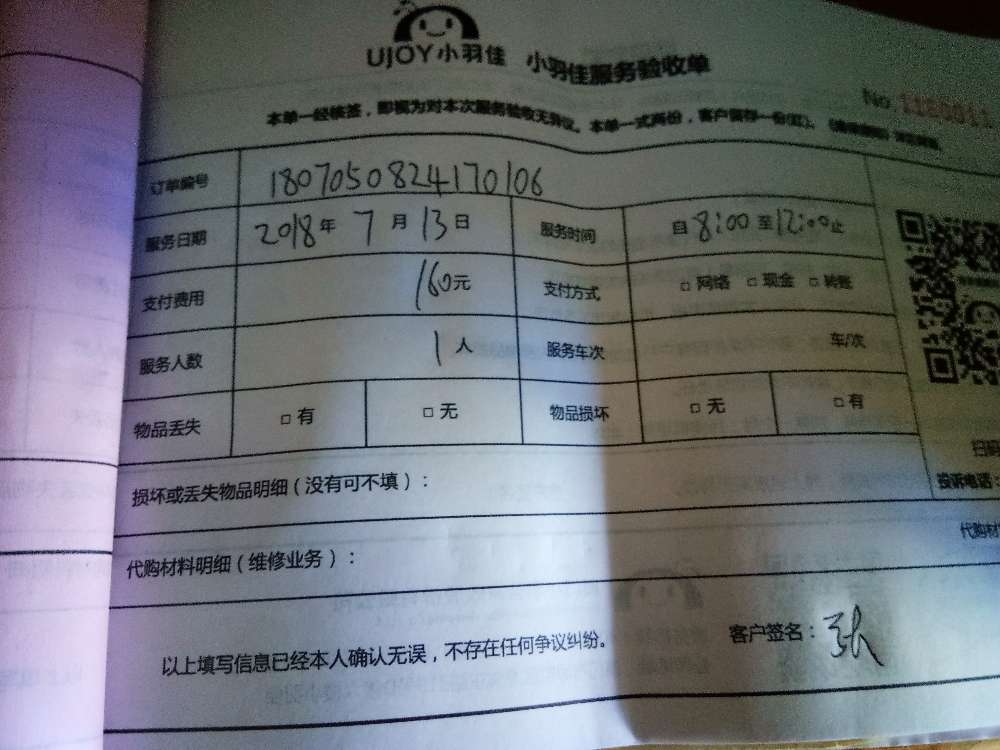 UJOY小羽佳 小羽佳服务验收单
No.
本单一经核签，即视为对本次服务验收无异议。本单一式两份，客户留存一份(红)、
订单编号 1807050824170106
服务日期 2018年 7月 13日 服务时间 自8:00至12:00止
支付费用 160元 支付方式 □网络 □现金 □转账
服务人数 1人 服务车次 车/次
物品丢失 □有 □无 物品损坏 □无 □有
扫码
损坏或丢失物品明细（没有可不填）： 投诉电话：
代购材料明细（维修业务）： 代购材
以上填写信息已经本人确认无误，不存在任何争议纠纷。 客户签名：张